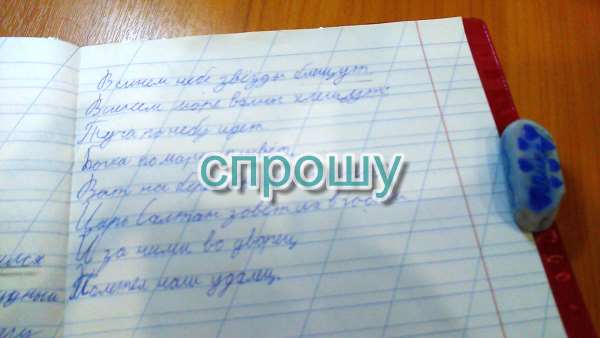 В синем небе звезды блещут
В синем море волны хлещут
Туча по небу идет
Бочка по
Вот на
спрошу
Царь Салтан зовет их в
И за ними во дворец
Полетел наш удалец.